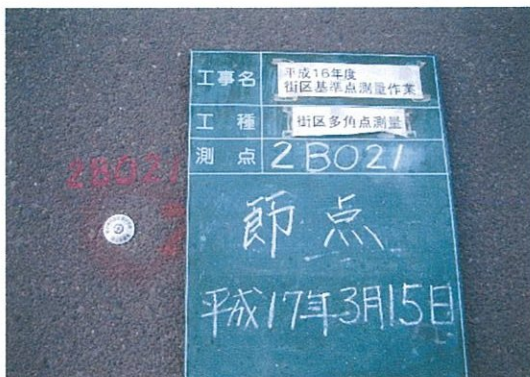 工事名
平成16年度
街区基準点測量作業
工種
街区多角点測量
測点
2B021
節点
平成17年3月15日
2B021